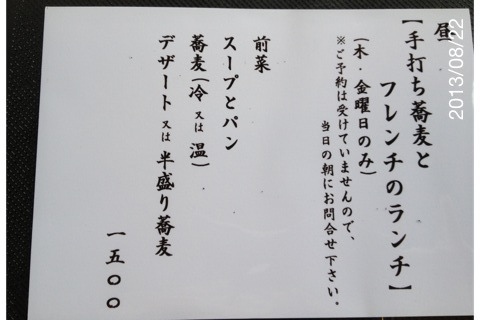 昼
【手打ち蕎麦と
フレンチのランチ】
(木・金曜日のみ)
※ご予約は受けていませんので、
当日の朝にお問合せ下さい。
前菜
スープとパン
蕎麦(冷 又は 温)
デザート 又は 半盛り蕎麦
一五〇〇
2013/08/22